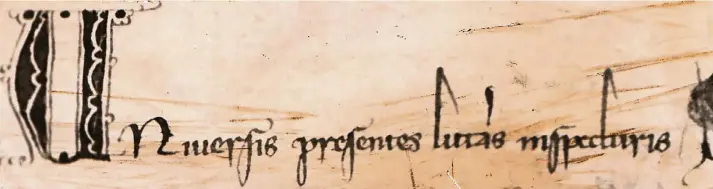 UNiuersis presentes litt'as inspecturis